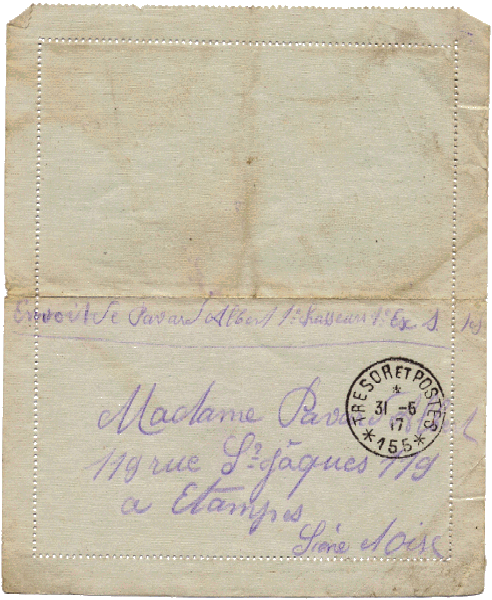 Envoit de Pavard Albert 1er chasseurs 1er Ex
TRESOR ET POSTES
*
31 -5
17
* 155 *
Madame Pavard
119 rue St Jâques 119
a Etampes
Siene et Oise